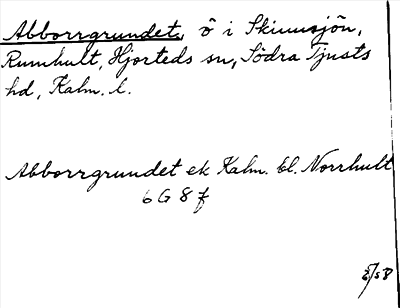 Abborrgrundet, ö i Skiresjön,
Rumhult, Hjorteds sn, Södra Tjusts
hd, Kalm. l.
Abborrgrundet ek Kalm. bl. Norrhult
6 G 8 f